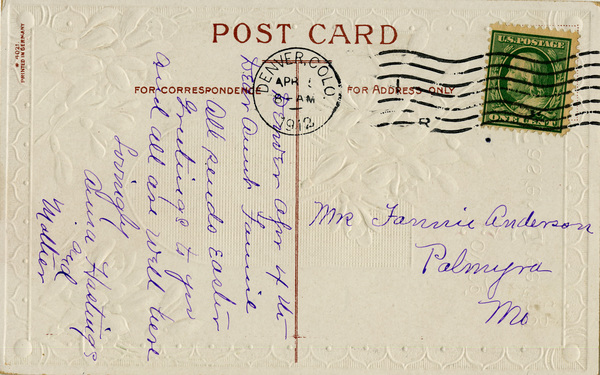 POST CARD
FOR CORRESPONDENCE
FOR ADDRESS ONLY
PRINTED IN GERMANY
DENVER, COLO.
APR
AM
1912
U.S. POSTAGE
ONE CENT
Denver Apr 4th
Dear Aunt Fannie
All sends Easter
Greetings to you
and all are well here
Lovingly
Anna Hastings
and
Mother
Mrs Fannie Anderson
Palmyra
Mo